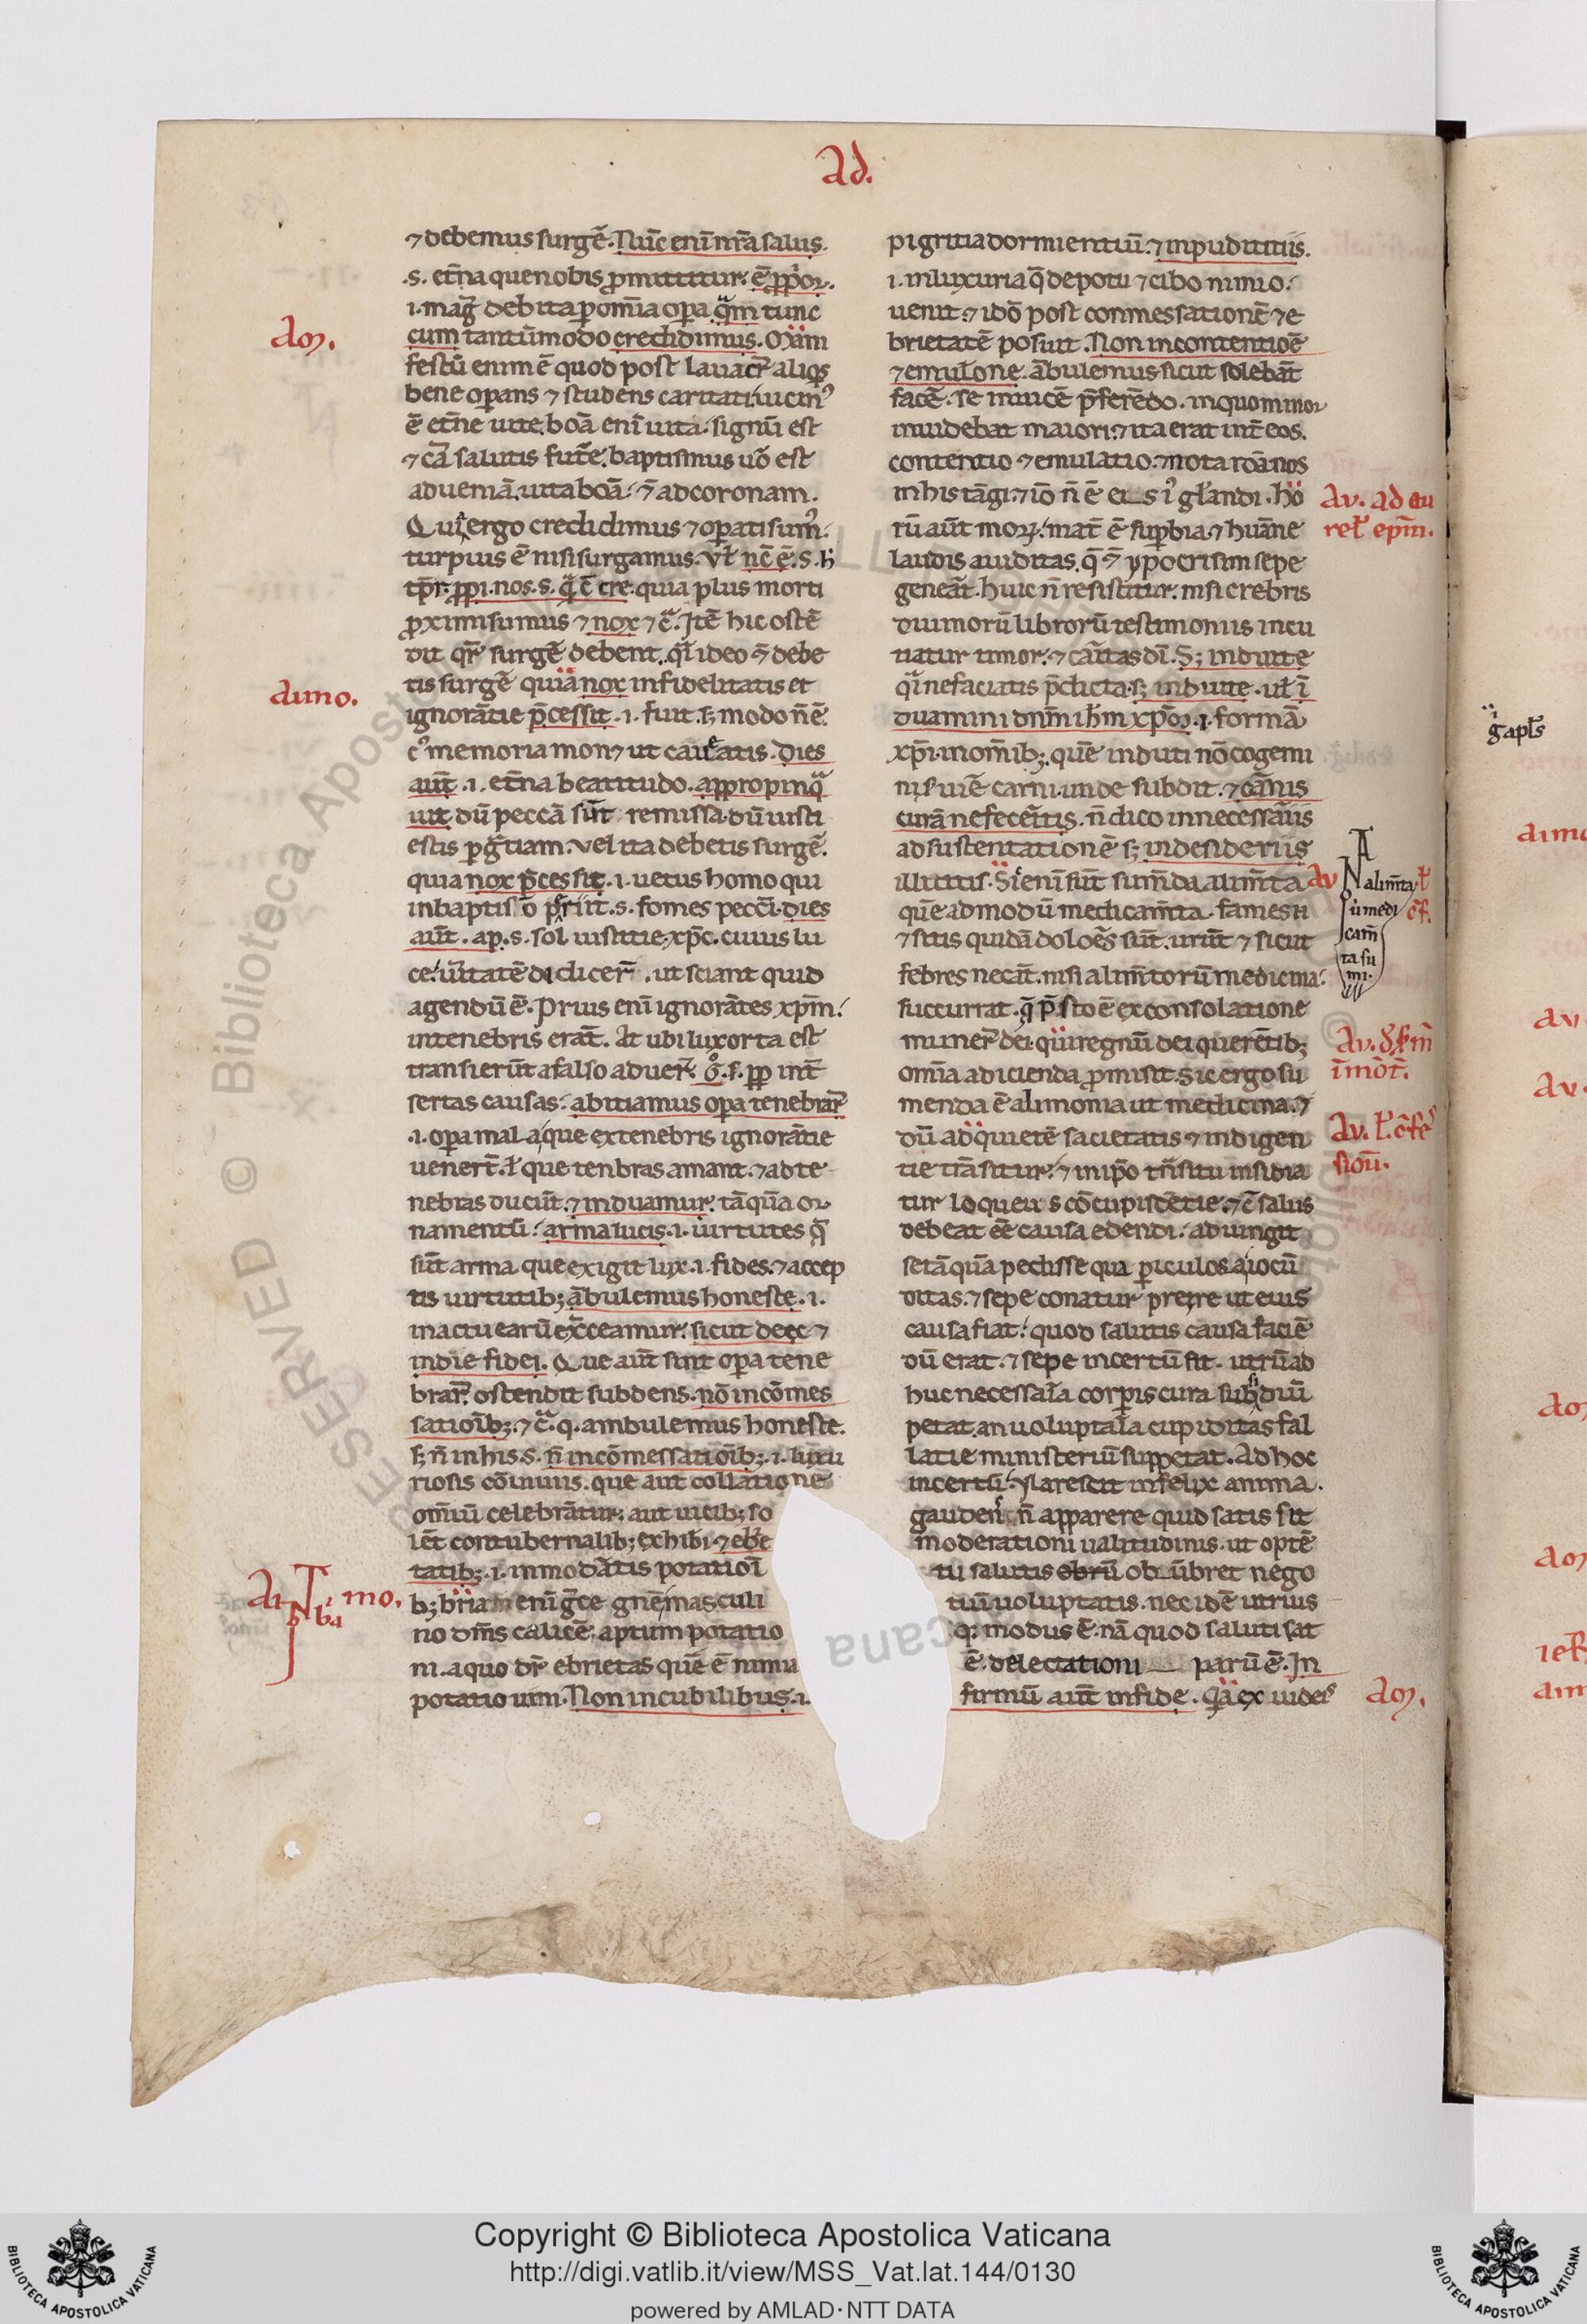 ad.
⁊ debemus surgẽ. Nũc enĩ nr̃a salus.
.s. et̃na que nobis ꝓmittitur. ẽ ꝓpior.
.i. mag̃ debita ꝑ om̃ia oꝑa q̃m tunc
cum tantũmodo credidimus. Mãni
festũ enim ẽ quod post lauacr̃ aliq̃s
bene oꝑans ⁊ studens caritati. uicinꝰ
ẽ et̃ne uite. boã enĩ uita. signũ est
⁊ cã salutis fut̃e. baptismus uõ est
ad ueniã. uita boã. ⁊̃ ad coronam.
Qui ergo credidimus ⁊ oꝑati sumꝰ.
turpius ẽ nisi surgamus. Vł nc̃ ẽ. s. h̃
tp̃r. ꝓpi. nos. s. q̃ c̃ cre. quia plus morti
ꝓximi sumus ⁊ nox ⁊ c̃. Itẽ hic ostẽ
dit qr̃ surgẽ debent. q̃i ideo ⁊̃ debe
tis surgẽ quia nox infidelitatis et
ignorãtie p̃cessit .i. fuit. sꝫ modo ñ ẽ.
cꝰ memoria monet ut caueatis. Dies
aut̃ .i. et̃na beatitudo. appropinq̃
uit dũ peccã sũt remissa. dũ iusti
estis ꝑ gr̃tiam. vel ita debetis surgẽ.
quia nox p̃cessit .i. uetus homo qui
in baptismo periit. s. fomes pecc̃i. dies
aut̃ . ap. s. sol iustitie. xp̃c. cuius lu
ce. ũitatẽ didicer̃ . ut sciant quid
agendũ ẽ. Prius enĩ ignorãtes xp̃m.
in tenebris erat̃. At ubi lux orta est
transierũt a falso ad uer̃. g̊. s. ꝓp int̃
sertas causas. abitiamus oꝑa tenebrar̃
.i. oꝑa mala, que ex tenebris ignorãtie
uenert̃. ł que tenbras amant. ⁊ ad te
nebras ducũt. ⁊ induamur. tãquã or
namentũ. arma lucis .i. uirtutes q̃
sũt arma que exigit lux .i. fides. ⁊ accep
tis uirtutibꝫ ãbulemus honeste .i.
in actu earũ exc̃ceamur. sicut decet
in die fidei. Que aut̃ sunt oꝑa tene
brar̃. ostendit subdens. nõ in cõmes
satioĩbꝫ. ⁊ c̃. q. ambulemus honeste.
sꝫ ñ in his. s. ñ in cõmessatioĩbꝫ .i. luxu
riosis cõuiuiis. que aut collatione
om̃iũ celebrãtur. aut uicibꝫ so
lẽt contubernalibꝫ exhiberi. ⁊ ebr̃e
tatibꝫ .i. immod̃atis potatioĩ
bꝫ bria enĩ gr̃ce gnẽ masculi
no dm̃s calicẽ aptum potatio
ni. a quo dr̃ ebrietas quẽ ẽ nimia
potatio uini. Non in cubilibus .i.
pigritia dormientiũ. ⁊ inpuditiis.
.i. in luxuria q̃ de potu ⁊ cibo nimio.
uenit. ⁊ idõ post conmessationẽ ⁊ e
brietatẽ posuit. Non in contentiõe
⁊ emulõne. ãbulemus sicut solebãt
facẽ. se inuicẽ p̃ferẽdo. in quo minor
inuidebat maiori. ⁊ ita erat int̃ eos.
contentio ⁊ emulatio. ⁊ nota roãnos
in his tãgi. ⁊ iõ ñ ẽ eis ĩ gl̃andi. Ho
rũ aut̃ morꝫ. mat̃ ẽ suꝑbia. ⁊ huãne
laudis auiditas. q̃ ⁊̃ ypocrisim sepe
geneãt. huic ñ resistitur. nisi crebris
diuinorũ librorũ testimoniis incu
tiatur timor. ⁊ cãitas dĩ. Sꝫ induite
q̃i ne faciatis p̃dicta. sꝫ induite. uł ĩ
duamini dnm̃ ih̃m xp̃m .i. formã
xp̃i. in omĩbꝫ. quẽ induti nõ cogemi
ni seruire carni. unde subdit. ⁊ cãnis
curã ne fecẽitis. ñ dico in necessãiis
ad sustentationẽ sꝫ in desideriis
illicitis. Sic enĩ sũt sumẽda alimẽta
quẽadmodũ medicamẽta. fames ñ
⁊ sitis quidã doloẽs sũt. urũt ⁊ sicut
febres necãt. nisi alimẽtorũ medicina.
succurrat. q̃ p̃sto ẽ ex consolatione
muner̃ dei. qui regnũ dei querẽtibꝫ
om̃ia adicienda ꝓmisit. Sic ergo su
menda ẽ alimonia ut medicina. ⁊
dũ ad quietẽ sacietatis ⁊ indigen
tie trãsitur. ⁊ in ip̃o trñsitu insidia
tur loqueus cõcupiscẽtie. ⁊ c̃ salus
debeat eẽ causa edendi. adiungit
se tãquã pedisse qua ꝑiculosa iocũ
ditas. ⁊ sepe conatur preire ut eius
causa fiat. quod salutis causa faciẽ
dũ erat. ⁊ sepe incertũ fit. utrũ ad
huc necessaĩa corꝑis cura subsidiũ
petat. an uoluptaĩa cupiditas fal
latie ministeriũ suppetat. Ad hoc
incertũ. ylarescit infelix anima.
gaudens ñ apparere quid satis sit
moderationi ualitudinis. ut optẽ
tu salutis obũbret nego
tiũ uoluptatis. nec idẽ utrius
q: modus ẽ. nã quod saluti sat
ẽ. delectationi parũ ẽ. In
firmũ aut̃ in fide. Quia ex iudeis
aimo.
av. ad au
reł epm̃.
av
alimt̃a
medi
cam̃
ta su
mi.
ł
c̃f.
av. ł. c̃fe
sioũ.
ai mo.
gapłs
Copyright © Biblioteca Apostolica Vaticana
http://digi.vatlib.it/view/MSS_Vat.lat.144/0130
powered by AMLAD·NTT DATA
BIBLIOTECA APOSTOLICA VATICANA
BIBLIOTECA APOSTOLICA VATICANA